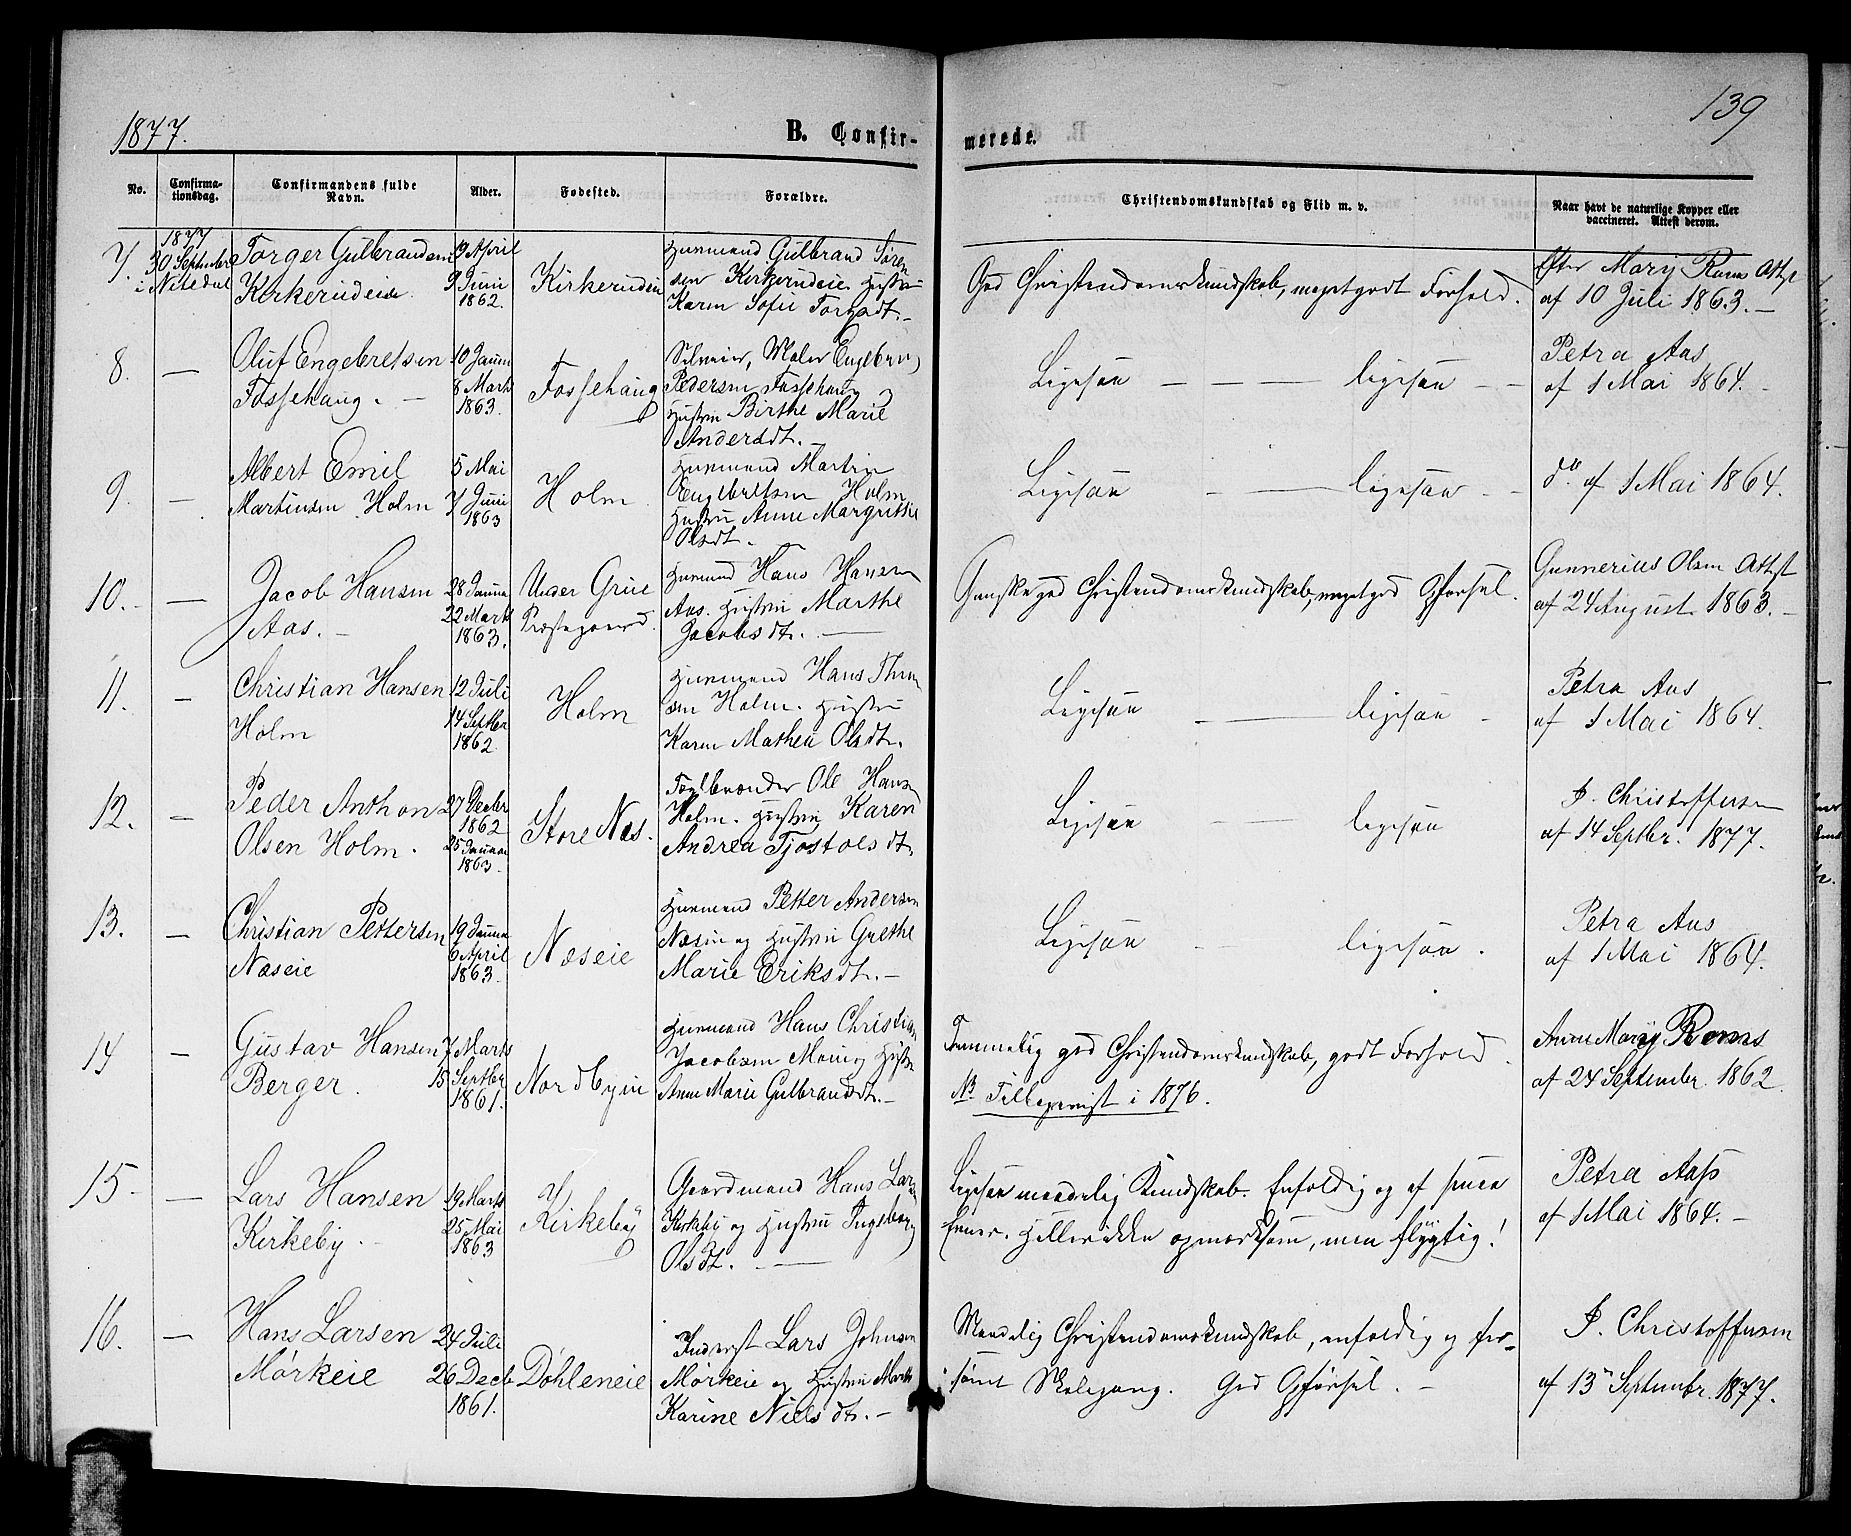 1877.
B. Confir-
merede.
139
No.
Confirma-
tionsdag.
Confirmandens fulde
Navn.
Alder.
Fødested.
Forældre.
Christendomskundskab og Flid m. v.
Naar havt de naturlige Kopper eller
vaccineret. Attest derom.
7.
1877
30 September
i Nitedal
Torger Gulbrandsen
Kirkerudeie
19 April
9 Juni
1862.
Kirkerudeie
Huusmand Gulbrand Søren
sen Kirkerudeie. Hustru
Karen Sofie Torgrdt. -
God Christendomskundskab, meget godt Forhold.
Efter Mary Rams Attst
af 10 Juli 1863. -
8.
—
Oluf Engebretsen
Fossehaug. -
10 Januar
8 Marts
1863.
Fossehaug
Selveier, Maler Engebret
Pedersen Fossehaug
Hustru Birthe Marie
Andersdt. -
Ligesaa — — — ligesaa - -
Petra Aas
af 1 Mai 1864. -
9.
—
Albert Emil
Martinsen Holm
5 Mai
7 Juni
1863
Holm
Huusmand Martin
Engebretsen Holm
Hustru Anne Margrethe
Olsdt. -
Ligesaa - — ligesaa - -
do. af 1 Mai 1864.
10. -
—
Jacob Hansen
Aas. -
28 Januar
22 Marts
1863.
Under Grue
Præstegaard.
Huusmand Hans Hansen
Aas. Hustru Marthe
Jacobsdt. —
Ganske god Christendomskundskab, meget god Opførsel.
Gunnerius Olsen Attst
af 24 August 1863. -
11.
-
Christian Hansen
Holm
12 Juli
14 Septbr
1862.
Holm
Huusmand Hans Thor
sen Holm. Hustru
Karen Mathea Olsdt.
Ligesaa - — ligesaa -
Petra Aas
af 1 Mai 1864.
12.
-
Peder Anthon
Olsen Holm.
27 Decbr
1862
25 Januar
1863.
Store Næs.
Teglbrænder Ole Hansen
Holm. Hustru Karen
Andrea Tjostolsdt.
Ligesaa - — ligesaa
P. Christoffersen
af 14 Septbr. 1877.
13.
—
Christian Pettersen
Næseie
19 Januar
6 April
1863.
Næseie
Huusmand Petter Andersen
Næseie og Hustru Grethe
Marie Eriksdt. -
Ligesaa - ligesaa.
Petra Aas
af 1 Mai 1864.
14
-
Gustav Hansen
Berger.
7 Marts
15 Septbr
1861.
Nordbyeie
Huusmand Hans Christian
Jacobsen Moeie og Hustru
Anne Marie Gulbrandsdt. -
Temmelig god Christendomskundskab, godt Forhold.
NB Tilbagevist i 1876.
Anne Mary Rams
af 24 September 1862.
15 -
—
Lars Hansen
Kirkeby. -
19 Marts
25 Mai
1863
Kirkeby
Gaardmand Hans Larsen
Kirkeby og Hustru Ingeborg
Olsdt. - —
Ligesaa maadelig Kundskab. Enfoldig og af smaa
Evner. Heller ikke opmærksom, men flygtig!
Petra Aass
af 1 Mai 1864. -
16.
—
Hans Larsen
Mørkeie
24 Juli
26 Decb
1861.
Døhleneie
Inderst Lars Johnsen
Mørkeie og Hustru Marthe
Karine Nielsdt. -
Maadelig Christendomskundskab, enfoldig og for-
sømt Skolegang. God Opførsel. -
P. Christoffersen
af 13 September 1877.